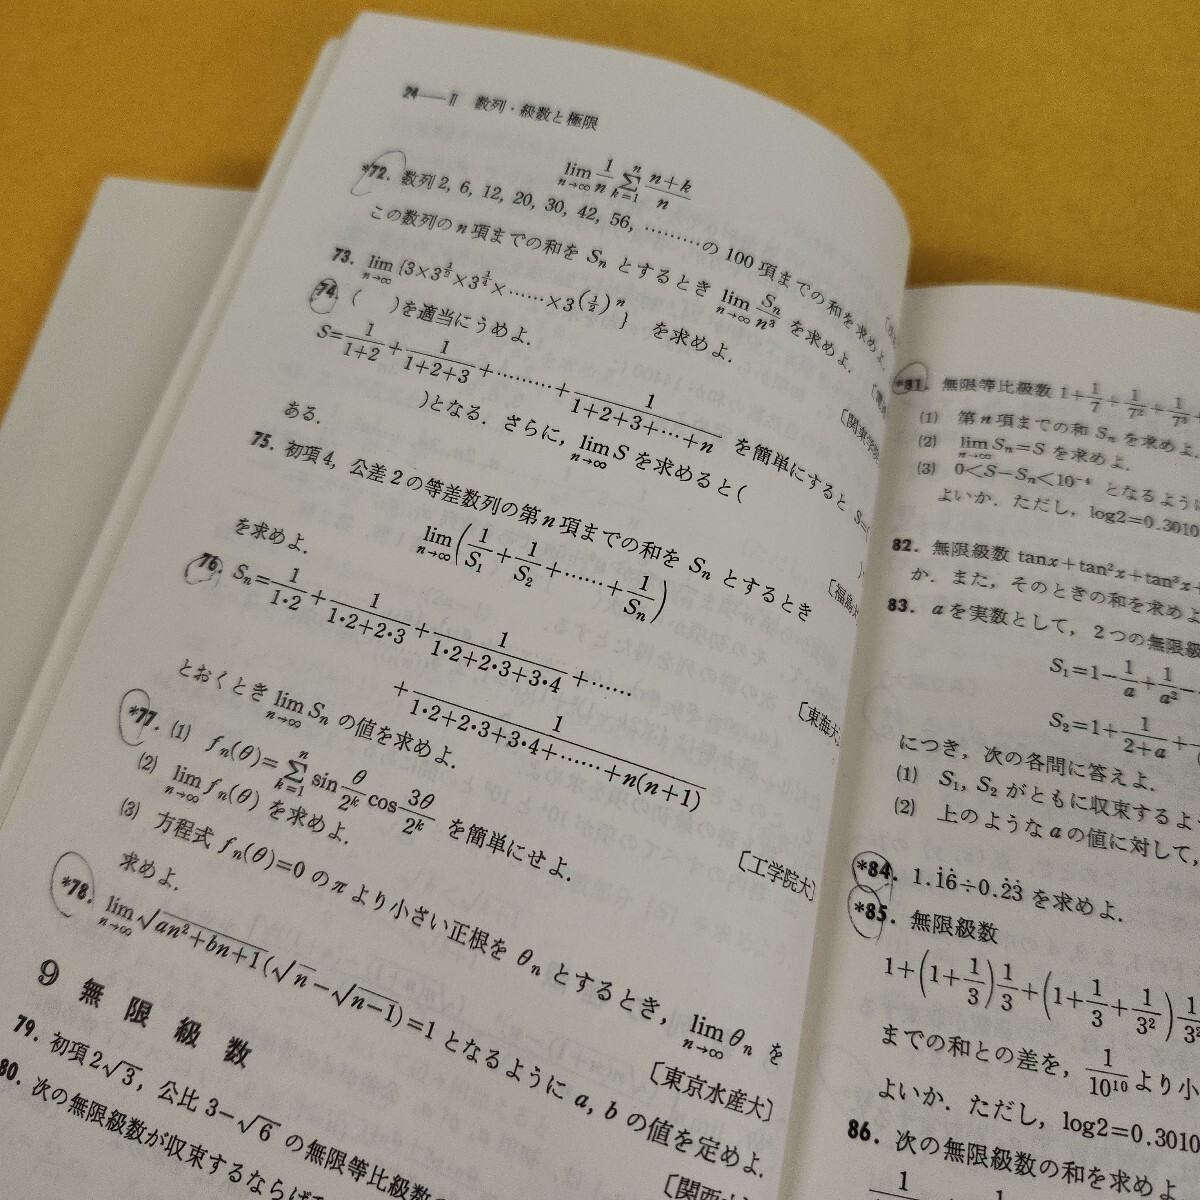 24——Ⅱ 数列・級数と極限
lim n→∞ 1/n Σ k=1 n (n+k)/n
*72. 数列2, 6, 12, 20, 30, 42, 56, ………の100項までの和を求めよ.
この数列のn項までの和を Sn とするとき lim n→∞ Sn/n³ を求めよ.
73. lim n→∞ {3×3^(1/2)×3^(1/4)×……×3^(1/2)^n} を求めよ.
74. ( )を適当にうめよ. 〔関東学院
S=1/(1+2)+1/(1+2+3)+………+1/(1+2+3+…+n) を簡単にすると S=(
)となる. さらに, lim n→∞ S を求めると( )
ある. 〔福島大
75. 初項4, 公差2の等差数列の第n項までの和を Sn とするとき
lim n→∞ (1/S1+1/S2+……+1/Sn)
を求めよ. 〔東海大
76. Sn=1/(1・2)+1/(1・2+2・3)+1/(1・2+2・3+3・4)+……
+1/(1・2+2・3+3・4+……+n(n+1))
とおくとき lim n→∞ Sn の値を求めよ. 〔工学院大〕
*77. (1) fn(θ)=Σ k=1 n sin θ/2^k cos 3θ/2^k を簡単にせよ.
(2) lim n→∞ fn(θ) を求めよ.
(3) 方程式 fn(θ)=0 のπより小さい正根を θn とするとき, lim n→∞ θn を
求めよ. 〔東京水産大〕
*78. lim n→∞ √(an²+bn+1)(√n−√(n−1))=1 となるように a, b の値を定めよ.
〔関西大
9 無限級数
79. 初項2√3, 公比 3−√6 の無限等比級数の
80. 次の無限級数が収束するならば
*81. 無限等比級数 1+1/7+1/7²+1/7³+
(1) 第n項までの和 Sn を求めよ.
(2) lim n→∞ Sn=S を求めよ.
(3) 0<S−Sn<10⁻⁴ となるように
よいか. ただし, log2=0.3010
82. 無限級数 tanx+tan²x+tan³x+
か. また, そのときの和を求めよ
83. aを実数として, 2つの無限級
S1=1−1/a+1/a²−
S2=1+1/(2+a)+
につき, 次の各問に答えよ.
(1) S1, S2 がともに収束するよ
(2) 上のようなaの値に対して,
*84. 1.1̇6̇÷0.2̇3̇ を求めよ.
*85. 無限級数
1+(1+1/3)1/3+(1+1/3+1/3²)1/3²
までの和との差を, 1/10¹⁰ より小
よいか. ただし, log2=0.3010
86. 次の無限級数の和を求めよ